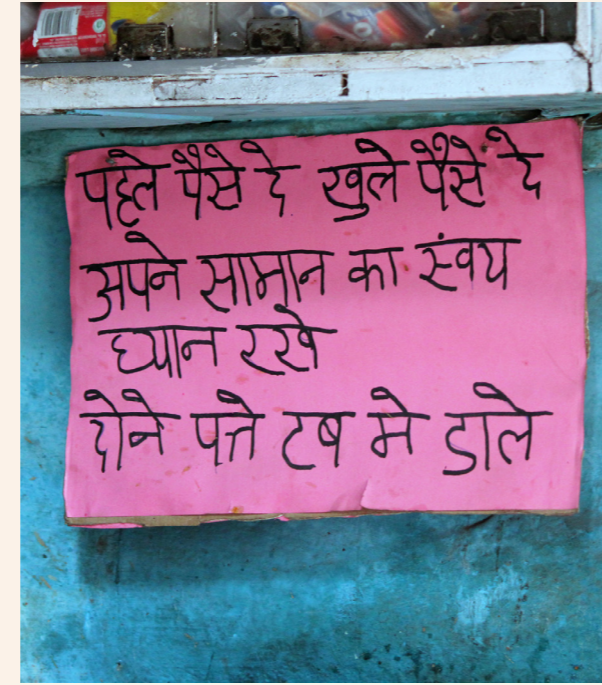 पहले पैसे दे खुले पैसे दे
अपने सामान का स्ंवय
ध्यान रखे
दोने पत्ते टब मे डाले